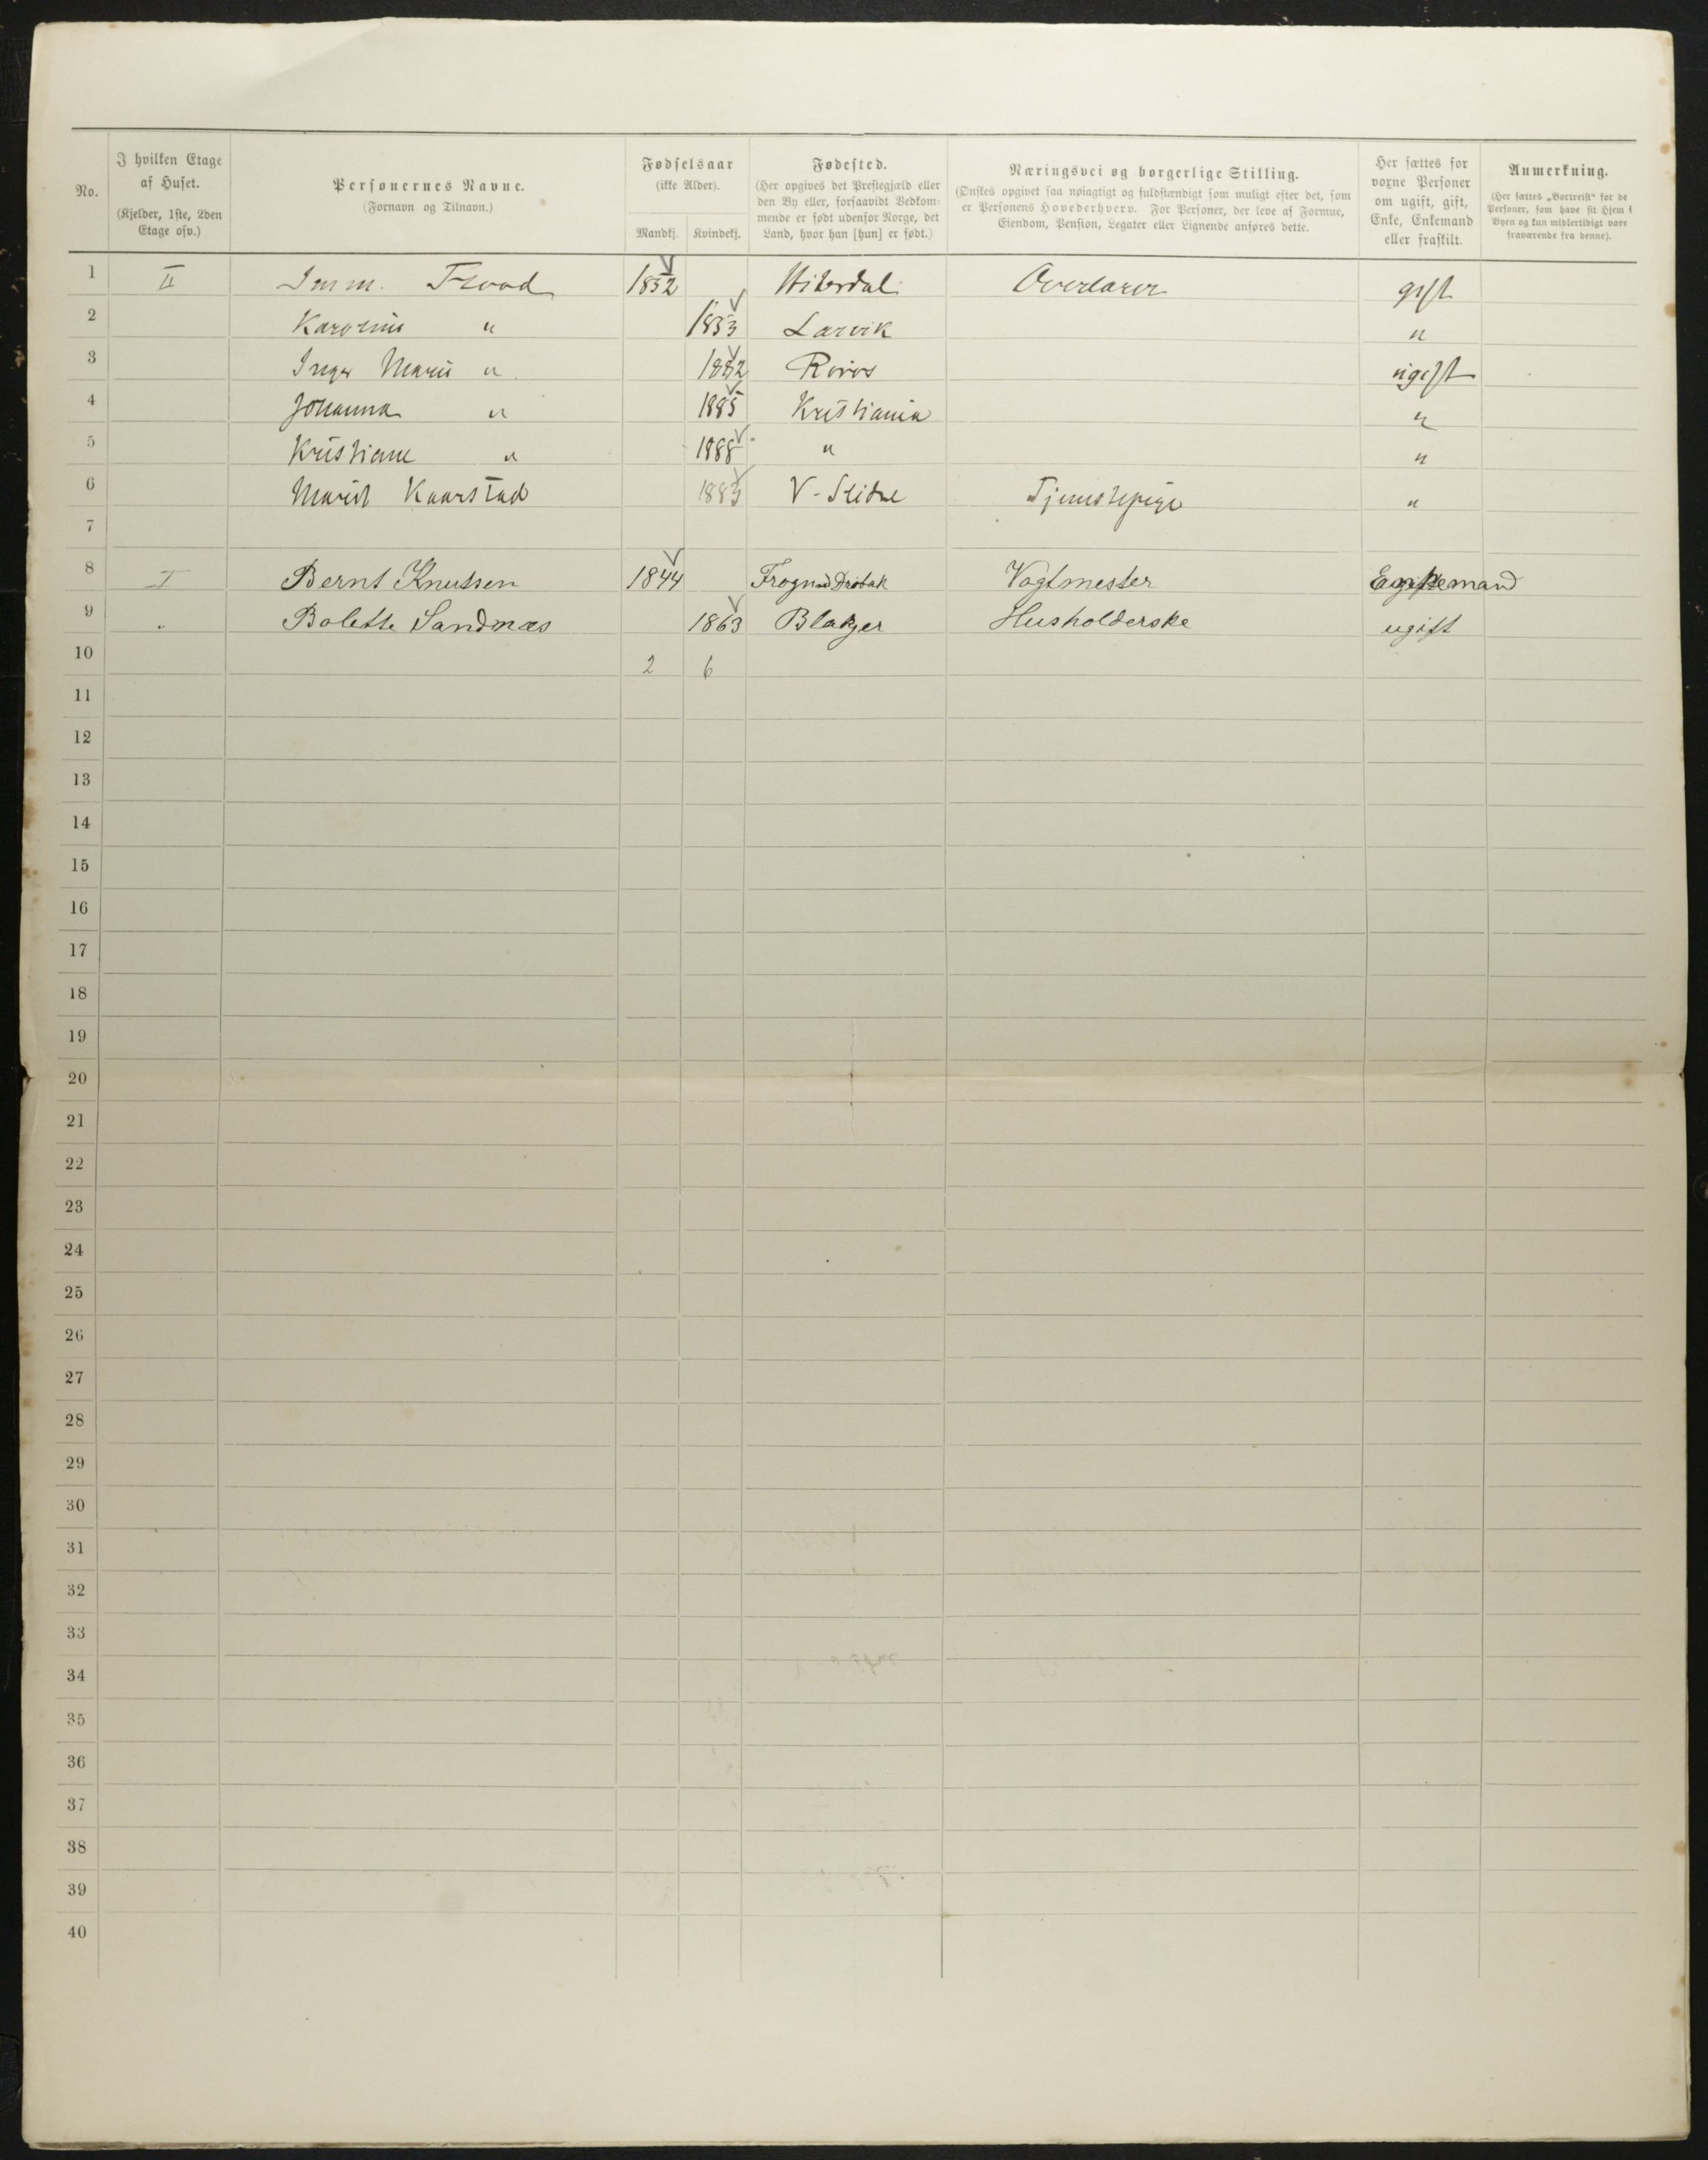 No.
I hvilken Etage af Huset.
(Kjelder, 1ste, 2den Etage osv.)
Personernes Navne.
(Fornavn og Tilnavn.)
Fødselsaar
(ikke Alder).
Mandkj.
Kvindekj.
Fødested.
(Her opgives det Prestegjæld eller den By eller, forsaavidt Vedkommende er født udenfor Norge, det Land, hvor han [hun] er født.)
Næringsvei og borgerlige Stilling.
(Ønskes opgivet saa nøiagtigt og fuldstændigt som muligt efter det, som er Personens Hovederhverv. For Personer, der leve af Formue, Eiendom, Pension, Legater eller Lignende anføres dette.
Her sættes for voxne Personer om ugift, gift, Enke, Enkemand eller fraskilt.
Anmerkning.
(Her sættes „Bortreist“ for de Personer, som have sit Hjem i Byen og kun midlertidigt være fraværende fra denne).
1 II Imm. Flood 1852 Hiterdal Overlærer gift
2 Karoline " 1853 Larvik "
3 Inger Marie " 1882 Røros ugift
4 Johanna " 1885 Kristiania "
5 Kristiane " 1888 " "
6 Marit Kaarstad 1883 V-Slidre Tjenestepige "
7
8 I Bernt Knutsen 1844 Frogn Drøbak Vagtmester Enkemand
9 " Bolette Sandnæs 1863 Blakjer Husholderske ugift
10 2 6
11
12
13
14
15
16
17
18
19
20
21
22
23
24
25
26
27
28
29
30
31
32
33
34
35
36
37
38
39
40